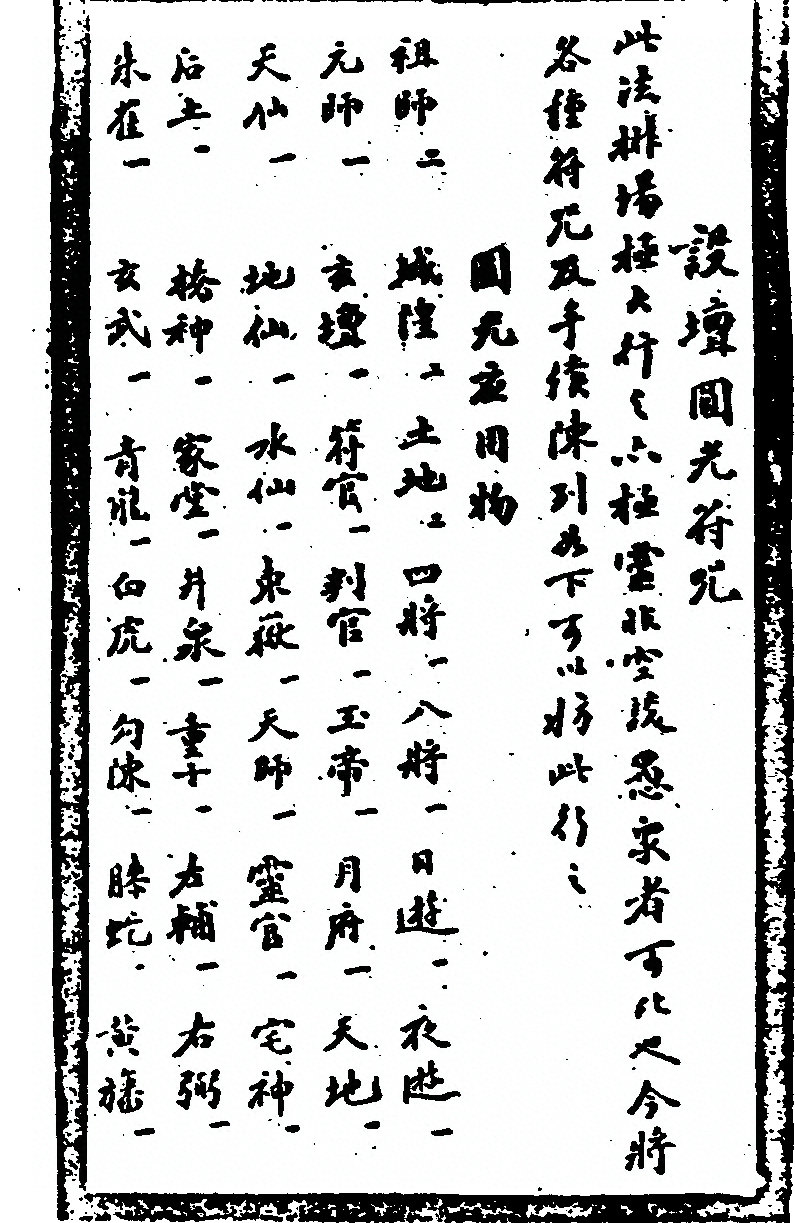 設壇圓光符咒
此法排場極大行之亦極靈非空疏愚衆者可比也今將
各種符咒及手續陳列於下可以妨此行之
圓光應用物
祖師二 城隍二 土地二 四將一 八將一 日遊一 夜遊一
元師一 玄壇一 符官一 判官一 玉帝一 月府一 天地一
天仙一 地仙一 水仙一 東嶽一 天師一 靈官一 宅神一
后土一 橋神一 家堂一 井泉一 童子一 左輔一 右弼一
朱雀一 玄武一 青龍一 白虎一 勾陳一 螣蛇一 黃旛一